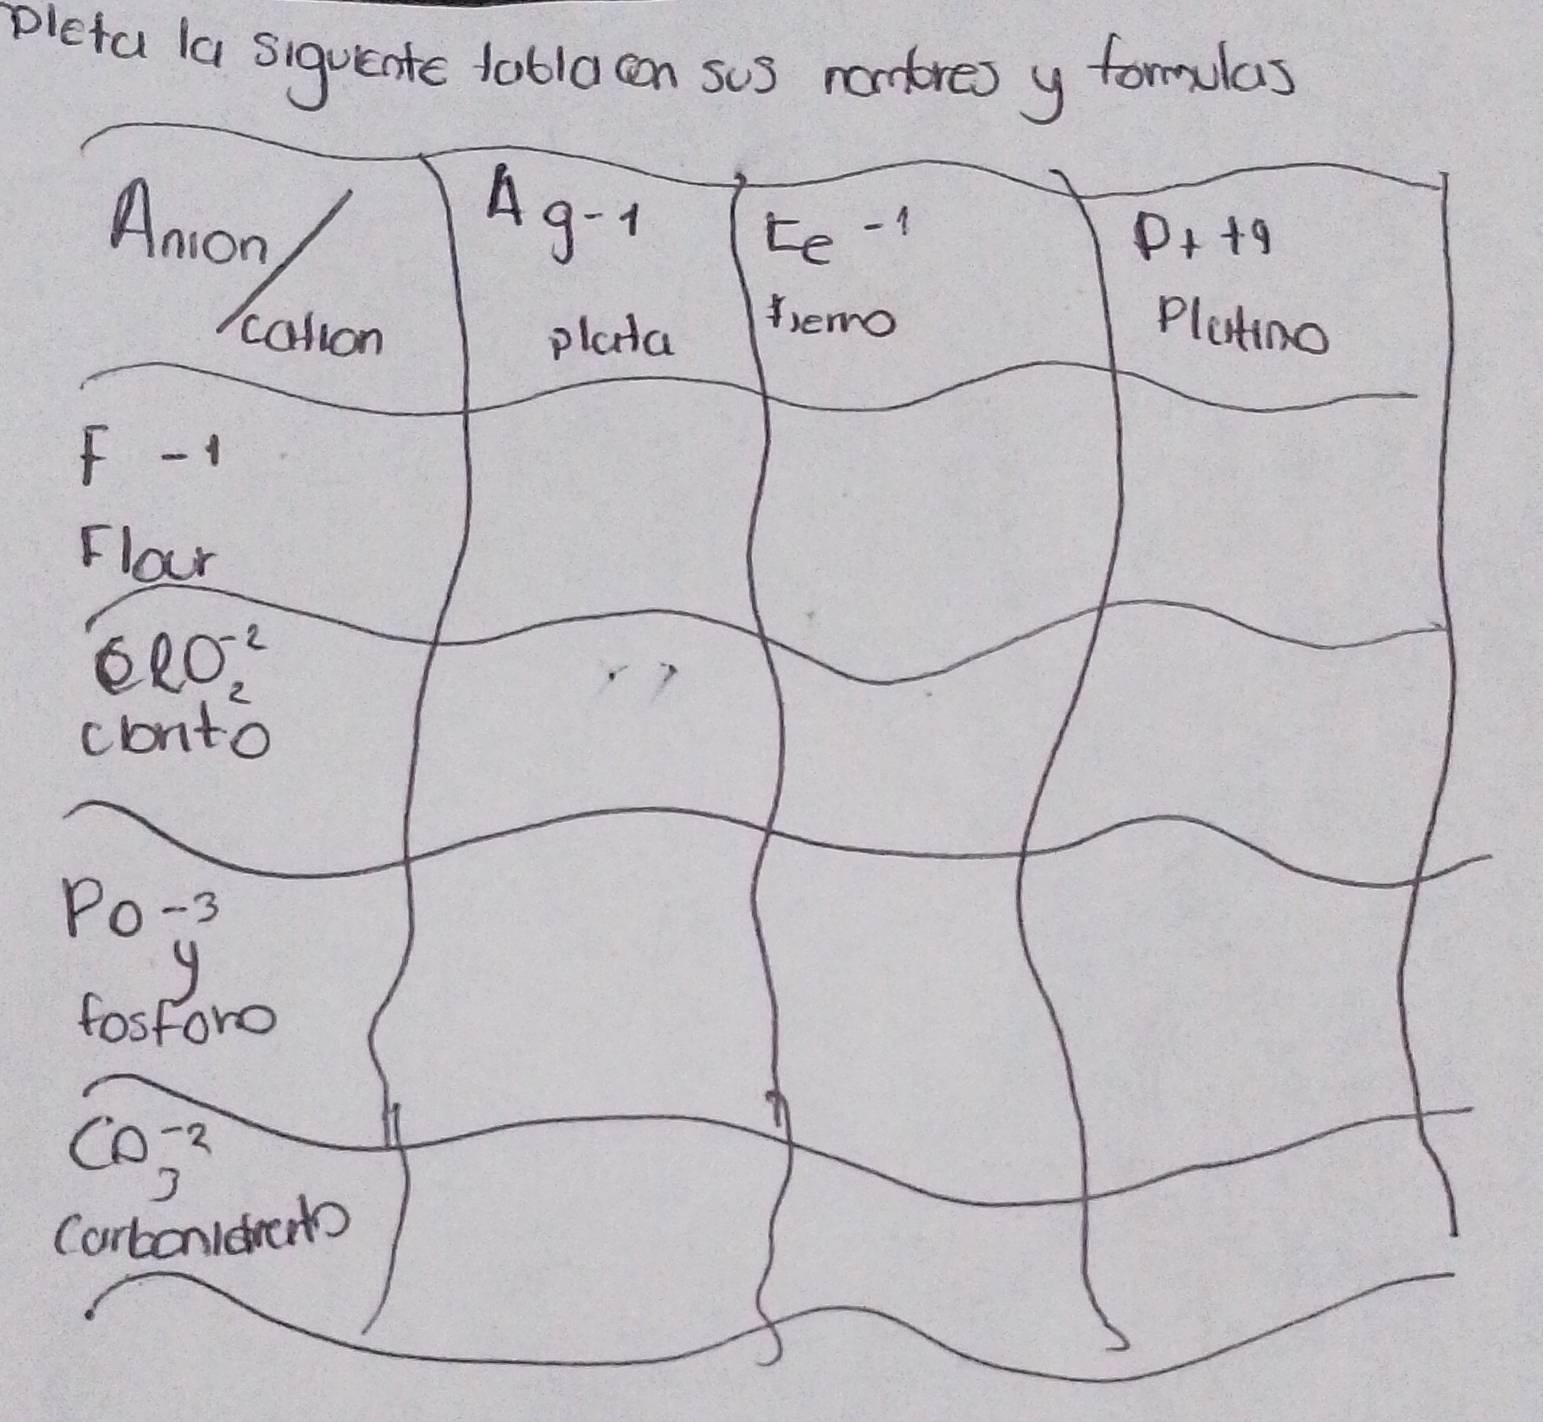 pleta la siguiente tabla con sus nombres y formulas
Anion / cation
Ag-1
plata
Fe -1
hierro
Pt +9
Platino
F -1
Flour
ClO₂⁻²
clorito
PO -3
y
fosforo
CO₃⁻²